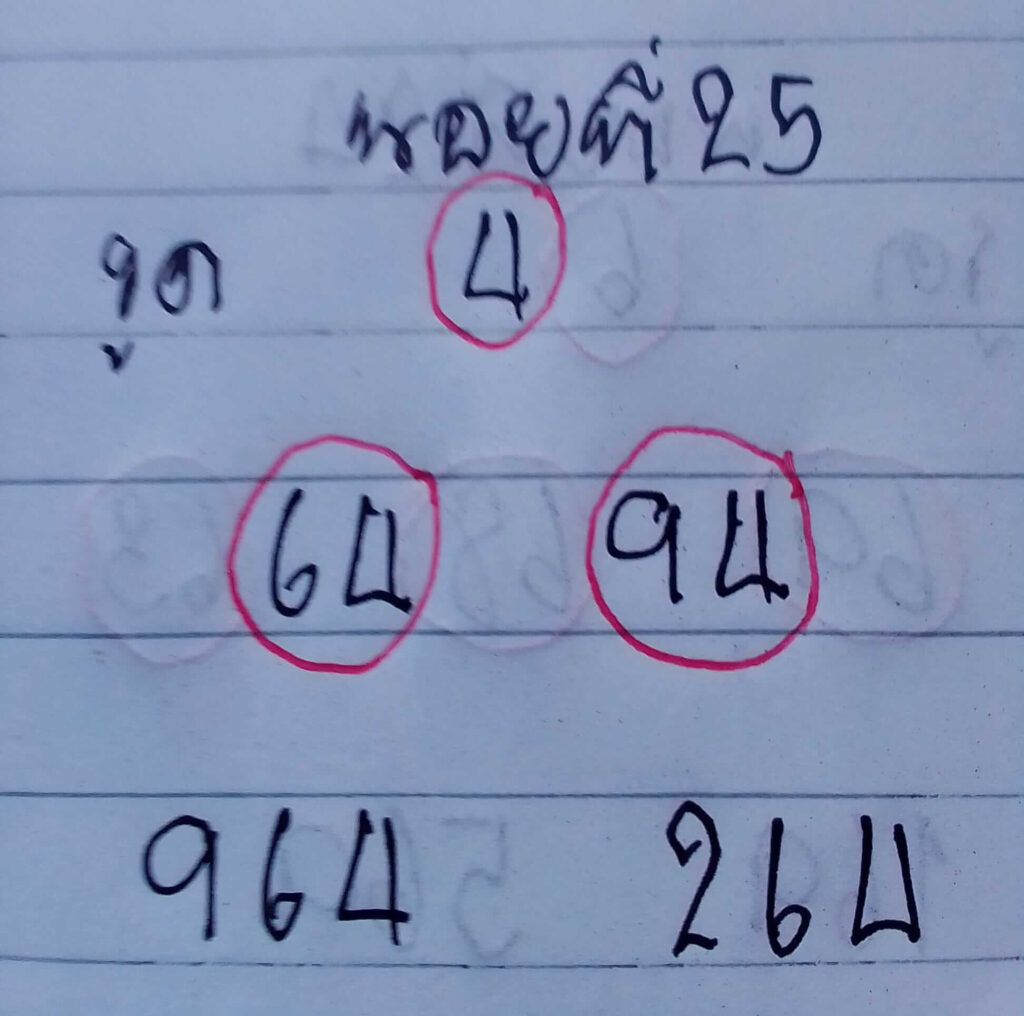 หอยที่ 25
งูด 4
64 94
964 264